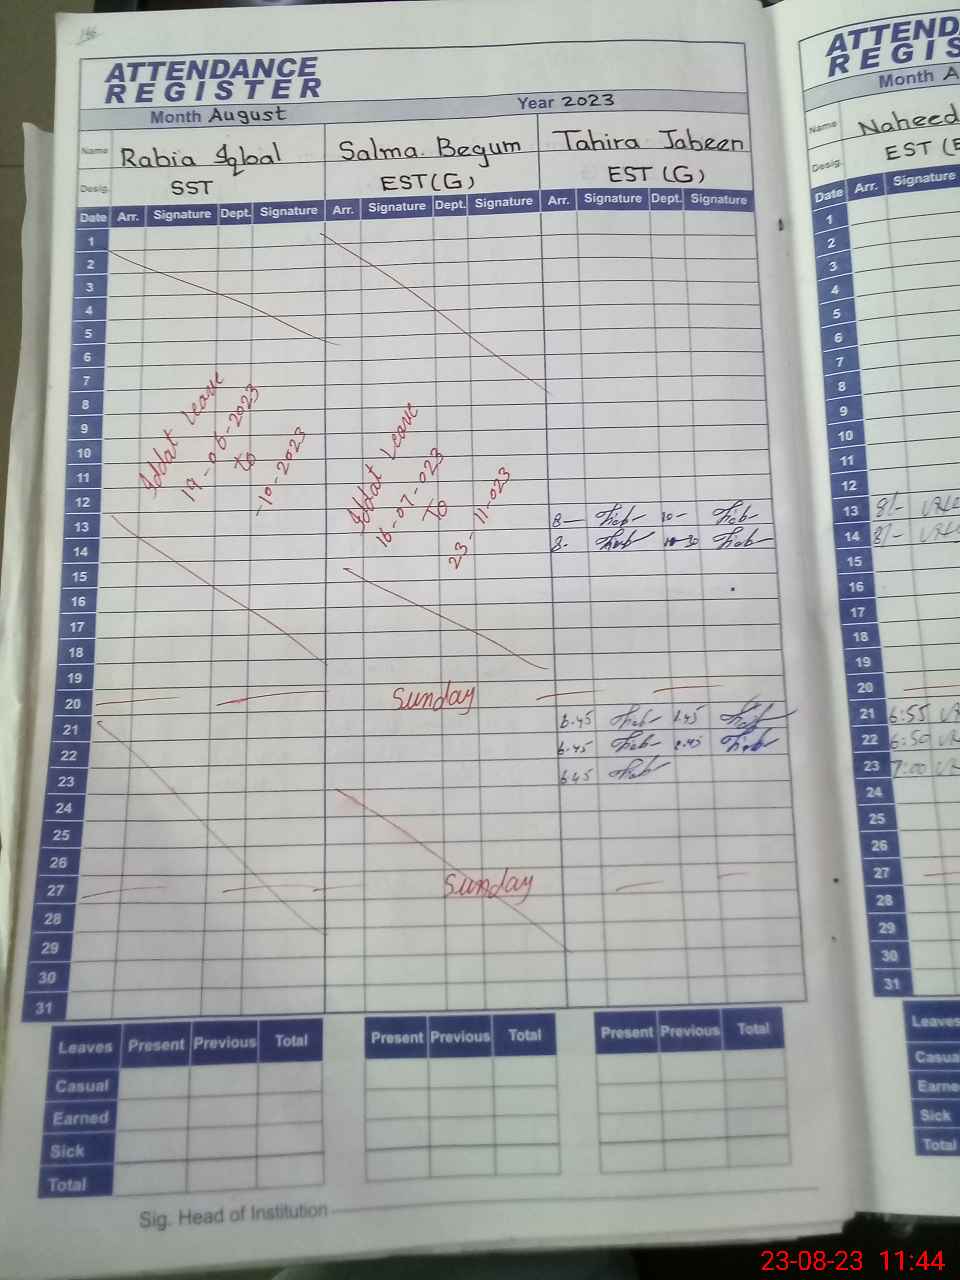 146
ATTENDANCE
REGISTER
Month August Year 2023
Name Rabia Iqbal Salma Begum Tahira Jabeen
Desig. SST EST(G) EST (G)
Date Arr. Signature Dept. Signature Arr. Signature Dept. Signature Arr. Signature Dept. Signature
1
2
3
4
5
6
7
8
9
10
11
12
13 8- 10-
14 8- 10-30
15
16
17
18
19
20 Sunday
21 6.45 1.45
22 6.45
23 6.45
24
25
26
27 Sunday
28
29
30
31
Iddat Leave
17-06-2023
To
-10-2023
Iddat Leave
16-07-023
To
23-11-023
Leaves Present Previous Total Present Previous Total Present Previous Total
Casual
Earned
Sick
Total
Sig. Head of Institution
ATTEND
REGIS
Month A
Name Naheed
Desig. EST (E
Date Arr. Signature
1
2
3
4
5
6
7
8
9
10
11
12
13 8/-
14 8/-
15
16
17
18
19
20
21 6:55
22 6:50
23 7:00
24
25
26
27
28
29
30
31
Leaves
Casua
Earne
Sick
Total
23-08-23 11:44